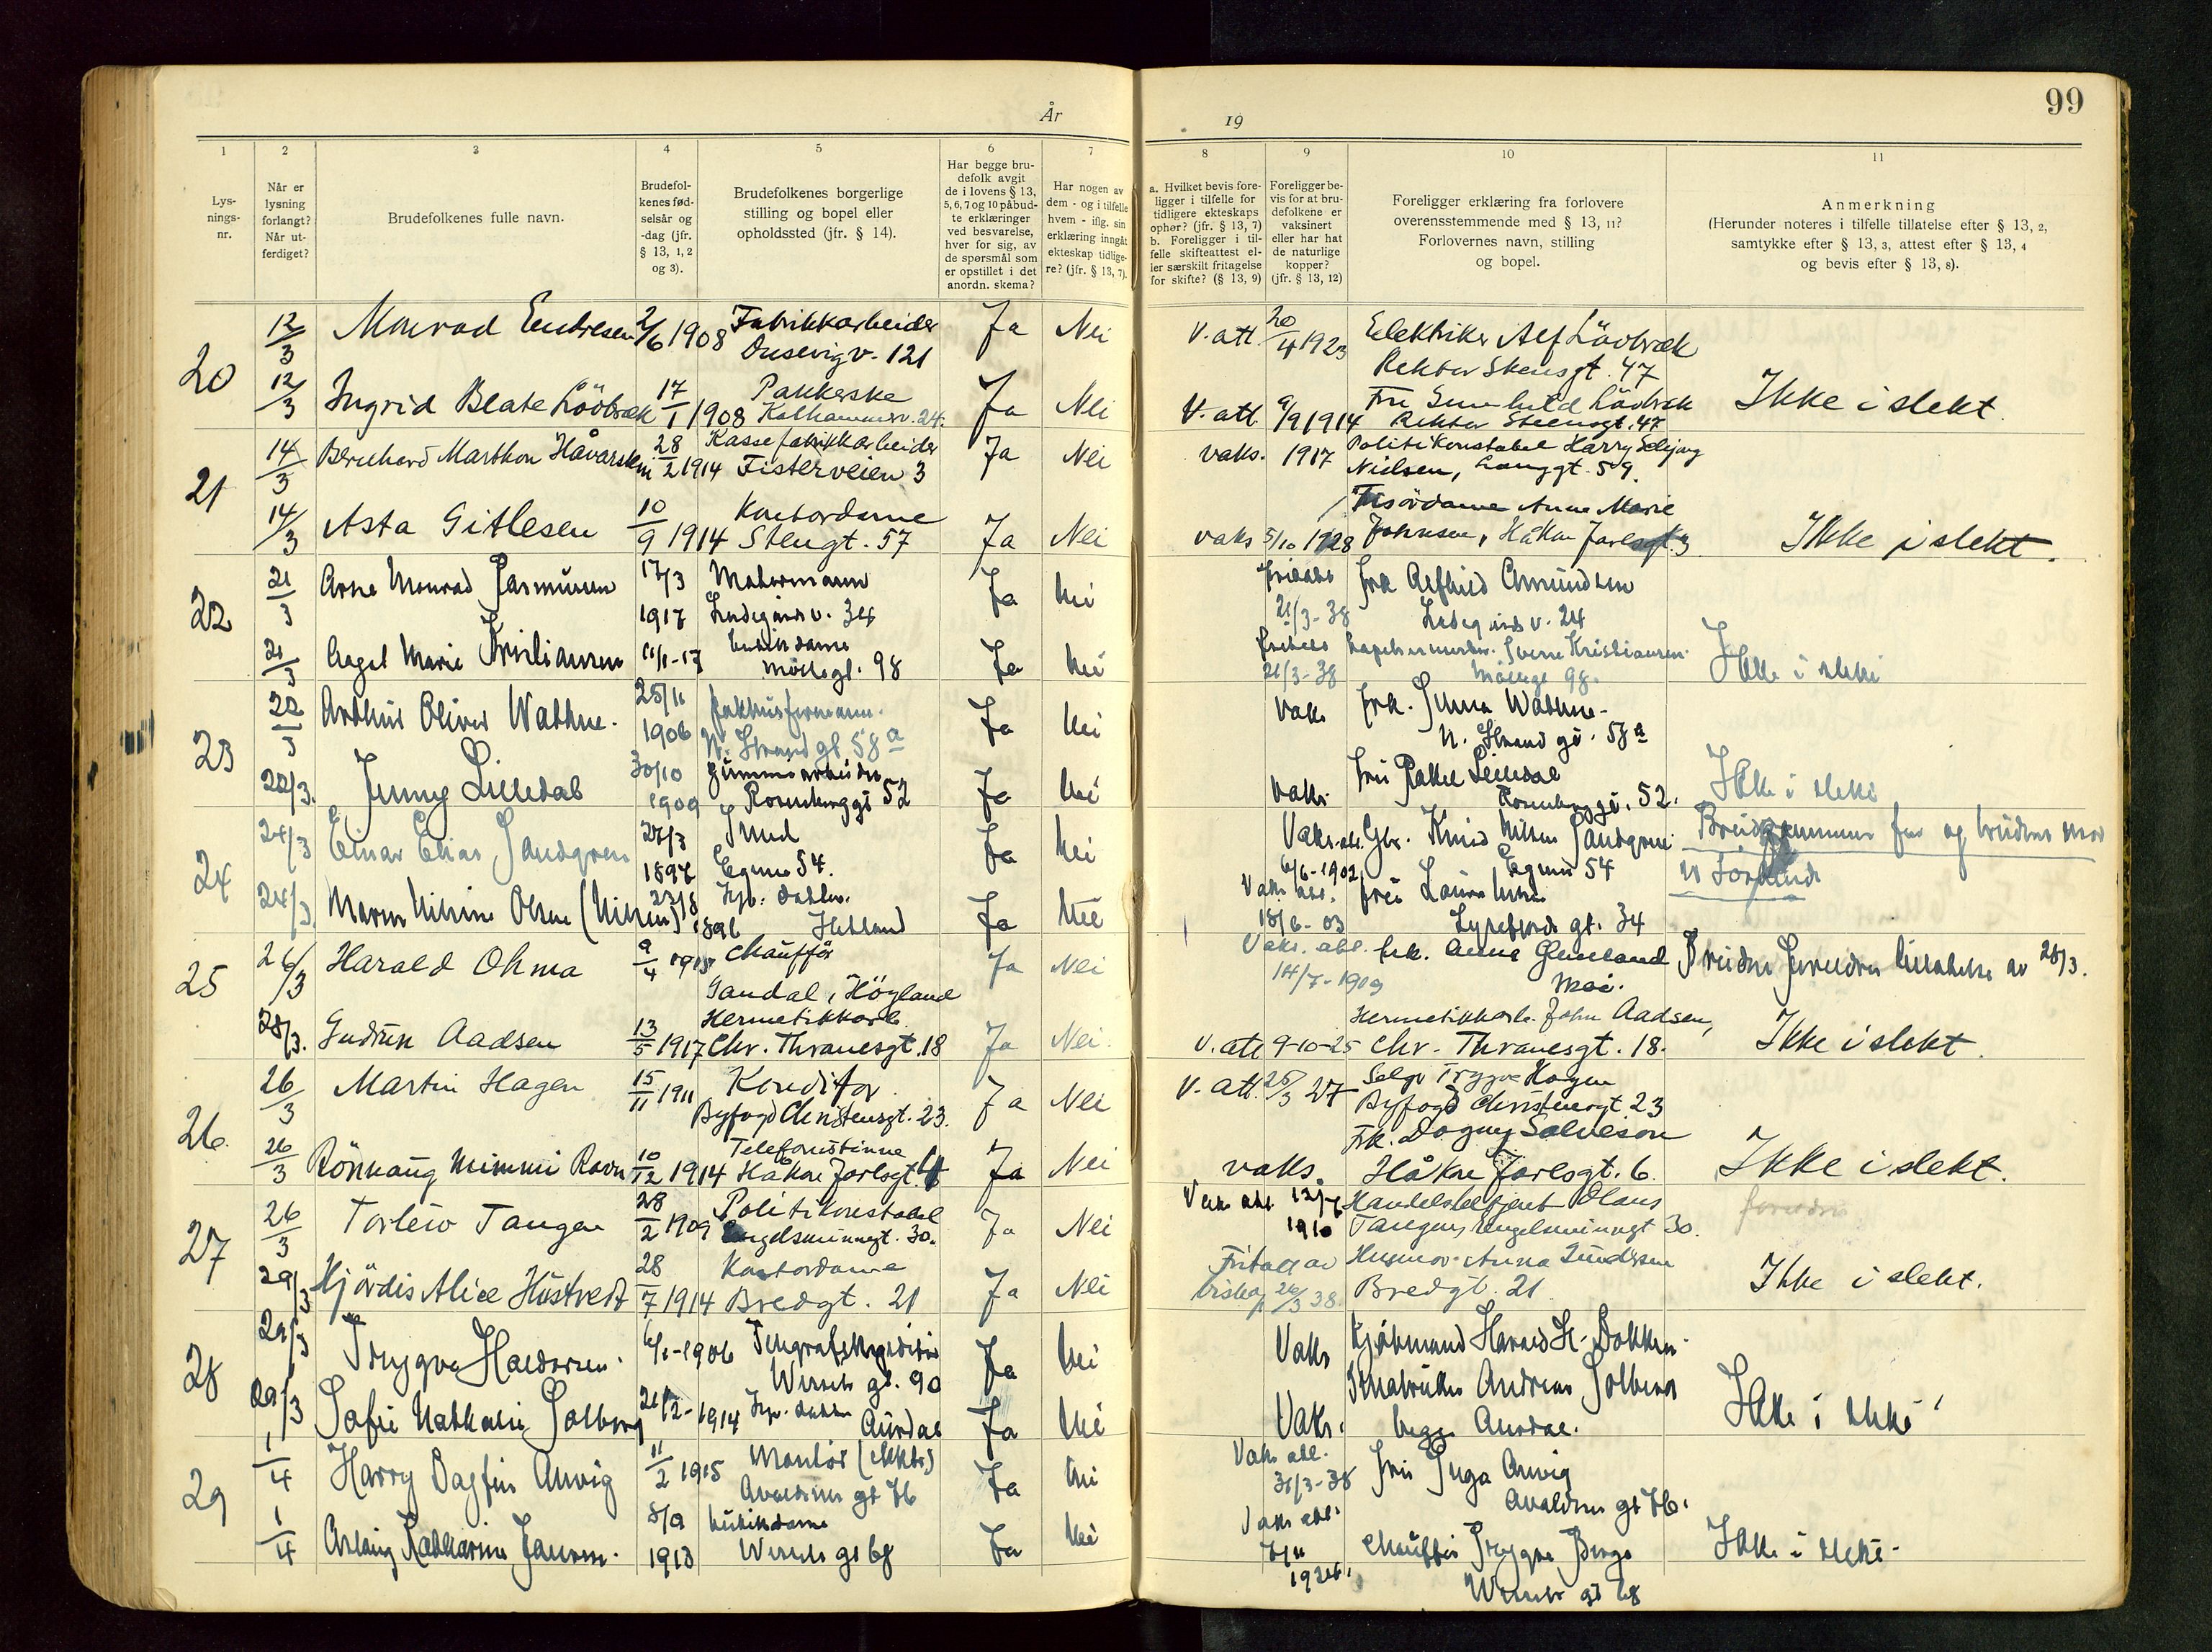 År
19
99
1
2
3
4
5
6
7
8
9
10
11
Lys-
nings-
nr.
Når er
lysning
forlangt?
Når ut-
ferdiget?
Brudefolkenes fulle navn.
Brudefol-
kenes fød-
selsår og
-dag (jfr.
§ 13, 1, 2
og 3).
Brudefolkenes borgerlige
stilling og bopel eller
opholdssted (jfr. § 14).
Har begge bru-
defolk avgit
de i lovens § 13,
5, 6, 7 og 10 påbud-
te erklæringer
ved besvarelse,
hver for sig, av
de spørsmål som
er opstillet i det
anordn. skema?
Har nogen av
dem - og i tilfelle
hvem - iflg. sin
erklæring inngåt
ekteskap tidlige-
re? (jfr. § 13, 7).
a. Hvilket bevis fore-
ligger i tilfelle for
tidligere ekteskaps
ophør? (jfr. § 13, 7)
b. Foreligger i til-
felle skifteattest el-
ler særskilt fritagelse
for skifte? (§ 13, 9)
Foreligger be-
vis for at bru-
defolkene er
vaksinert
eller har hat
de naturlige
kopper?
(jfr. § 13, 12)
Foreligger erklæring fra forlovere
overensstemmende med § 13, 11?
Forlovernes navn, stilling
og bopel.
Anmerkning
(Herunder noteres i tilfelle tillatelse efter § 13, 2,
samtykke efter § 13, 3, attest efter § 13, 4
og bevis efter § 13, 8).
20
12/3 Monrad Endresen 2/6 1908 Fabrikkarbeider Ja Nei V. att. 20/4 1923 Elektriker Alf Lövbræk
Dusevigv. 121 Rektor Steensgt. 47
12/3 Ingrid Beate Lövbræk 17/1 1908 Pakkerske Ja Nei V. att. 9/9 1914 Fru Gunhild Lövbræk Ikke i slekt
Kalhammerv. 24. Rektor Steensgt. 47
21
14/3 Bernhard Marthon Håvarstein 28/2 1914 Kassefabrikkarbeider Ja Nei vaks. 1917 Politikonstabel Harry Selijorg
Fisterveien 3 Nielsen, Langgt. 59.
14/3 Asta Gitlesen 10/9 1914 Kontordame Ja Nei vaks 5/10 1928 Frisördame Anne Marie
Stengt. 57 Johnsen, Håkon Jarlsgt. 3 Ikke i slekt.
22
21/3 Arne Monrad Rasmussen 17/3 Ja Nei frk Alfhild Amundsen
1917 Ladegårdsv. 34 21/3-38 Ladegårdsv. 24
21/3 Aagot Marie Kristiansen 11/1-17 Butikkdame Ja Nei Sverre Kristiansen
Möllegt. 98 21/3-38 Möllegt 98. Ikke i slekt
23
22/3 Arthur Oliver Wathne. 25/11 Pakkhusformann. Ja Nei Vaks frk. Gunna Wathne-
1906 N. Strandgt. 58a N. Strand gt. 58a
22/3. Jenny Lilledal 30/10 Gummiarbeider Ja Nei Vaks. Fru Rakel Lilledal
1909 Rosenberggt 52 Rosenberggt. 52. Ikke i slekt
24
24/3 Einar Elias Sandgren 27/3 Smed Ja Nei Vaks. att. Gbr. Knud Nilsen Sandgren Brudgummens far og brudens mor
1897 Egenes 54. 6/6-1902 Egenes 54 er
24/3 Maren Nilsine Olsen (Nilsen) 23/8 Hjv. datter. Ja Nei Vaks. att. fru Laura
1896 Hetland 18/6-03 Lysefjords gt. 34
25
26/3 Harald Ohma 9/4 Chauffør Ja Nei Vaks. att. frk. Anne
Sandal i Høyland 14/7-1909 Moi. Brudens foreldres tillatelse av 28/3.
28/3. Gudrun Aadsen 13/5 1917 Hermetikkarb. Ja Nei. V. att 9-10-25 Hermetikkarb. John Aadsen,
Chr. Thranesgt. 18 Chr. Thranesgt. 18. Ikke i slekt.
26.
26/3 Martin Hagen 15/11 1911 Konditor Ja Nei V. att. 25/3 27 Selgr Trygve Hagen
Byfogd Christensgt. 23. Byfogd Christensgt. 23
26/3 Rönnaug Mimmi Ravn 10/12 1914 Telefonistinne Ja Nei vaks. Frk. Dagny Salveson
Håkon Jarlsgt. 6 Håkon Jarlsgt. 6. Ikke i slekt.
27
26/3 Torleiv Tangen 28/2 1909 Politikonstabel Ja Nei Vaks att. 12/7 Handelsbetjent Olaus
Engelsminnegt. 30. 1910 Tangen, Engelsminnegt 30. foreldre
29/3 Hjördis Alice Hustvedt 28/7 1914 Kontordame Ja Nei Fritatt av Husmor Anna Gundersen
Bredgt. 21 biskop 26/3 38. Bredgt. 21 Ikke i slekt.
28
29/3 Trygve Haldorsen. 6/1-1906 Telegrafekspeditør Ja Nei Vaks Kjöbmand Harald H. Dokken.
Wessels gt. 90 Småbruker Andreas Solberg
29/3 Sofie Nathalie Solberg 21/12-1914 Hjv. datter Ja Nei Vaks. begge Aurdal.
Aurdal Ikke i slekt
29
1/4 Harry Dagfin Anvig 11/2 1915 Montör (elektr) Ja Nei Vaks att. Fru Inga Anvig
Avaldsnes gt 76 31/3-38 Avaldsnes gt 76.
1/4 Aslaug Kathharine Jansen. 8/9 butikkdame Ja Nei Vaks att. Chauffør Trygve Berge
1913 Wessels gt 68 Wessels gt 68 Ikke i slekt.